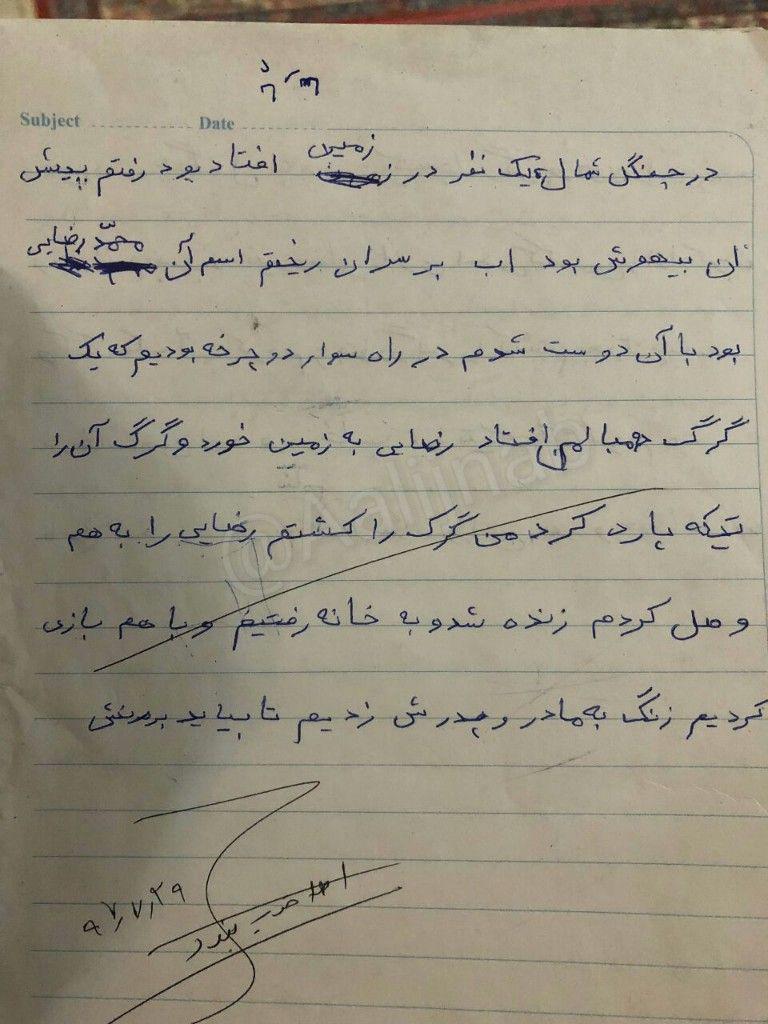 Subject
Date
در جنگل شمال یک نفر در زمین افتاد بود رفتم پیش
آن بیهوش بود اب بر سر ان ریختم اسم آن محمّد رضایی
بود با آن دوست شدم در راه سوار دوچرخه بودیم که یک
گرگ دمبالمن افتاد رضایی به زمین خورد و گرگ آن را
تیکه پاره کرد من گرگ را کشتم رضایی را به هم
وصل کردم زنده شد و به خانه رفتیم و با هم بازی
کردیم زنگ به مادر و پدرش زدیم تا بیاید ببرنش
۹۷٫۷٫۲۹
@Aaliinab